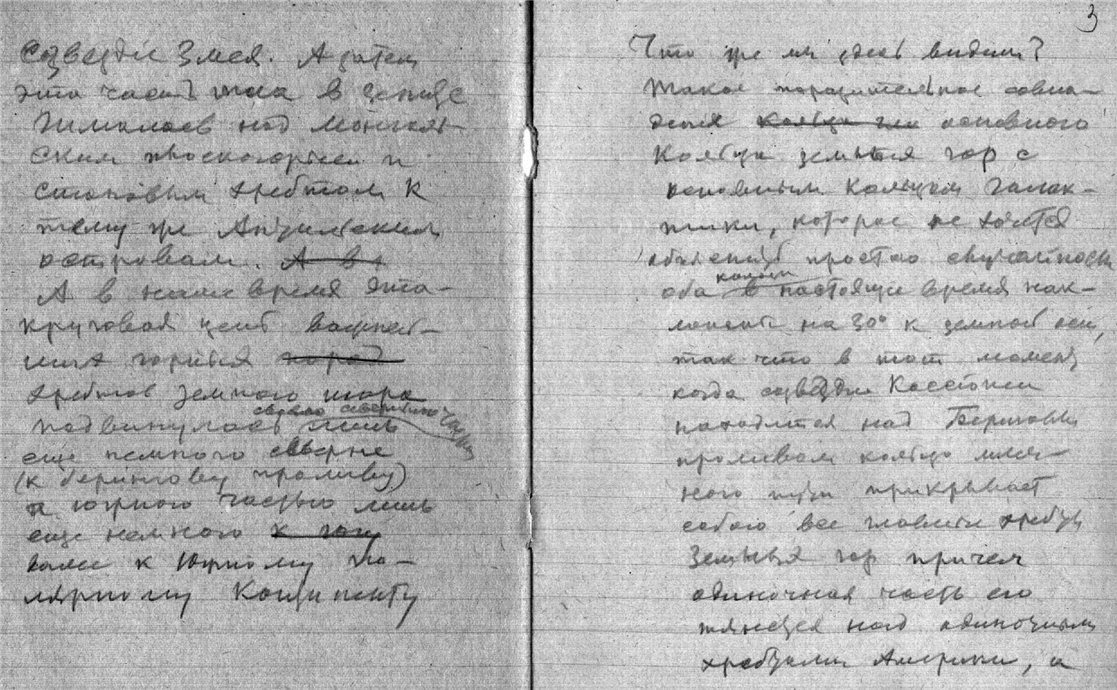 Созвездie Змея. А затем
эта часть шла в зените
Гималаев над Монголь-
ским плоскогорьем и
Становым хребтом к
тому же Азильским
островам. А в
А в наше время эта
круговая цепь важней-
ших горных
хребтов земного шара
подвинулась лишь
своею северною частью
еще немного севернее
(к берингову проливу)
а южною частью лишь
еще немного к
далее к Южному По-
лярному Континенту
3
Что же мы здесь видим?
Такое поразительное совпа-
дение кольца основного
Кольца земных гор с
основным Кольцом Галак-
тики, которое не хочется
объяснить простою случайностью
оба кольца в настоящее время нак-
лонены на 30° к земной оси,
так что в тот момент
когда созвездие Кассиопеи
находится над Беринговым
проливом кольцо млеч-
ного пути прикрывает
собою все главные хребты
Земных гор причем
одиночная часть его
тянется над одиночным
хребтами Америки, а